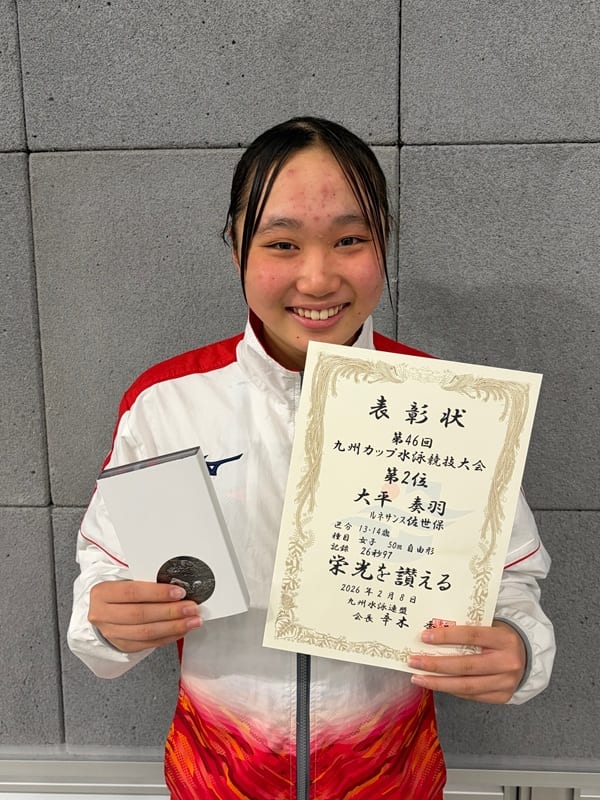 表彰状
第46回
九州カップ水泳競技大会
第2位
大平 奏羽
ルネサンス佐世保
区分 13・14歳
種目 女子 50m 自由形
記録 26秒97
栄光を讃える
2026年2月8日
九州水泳連盟
会長